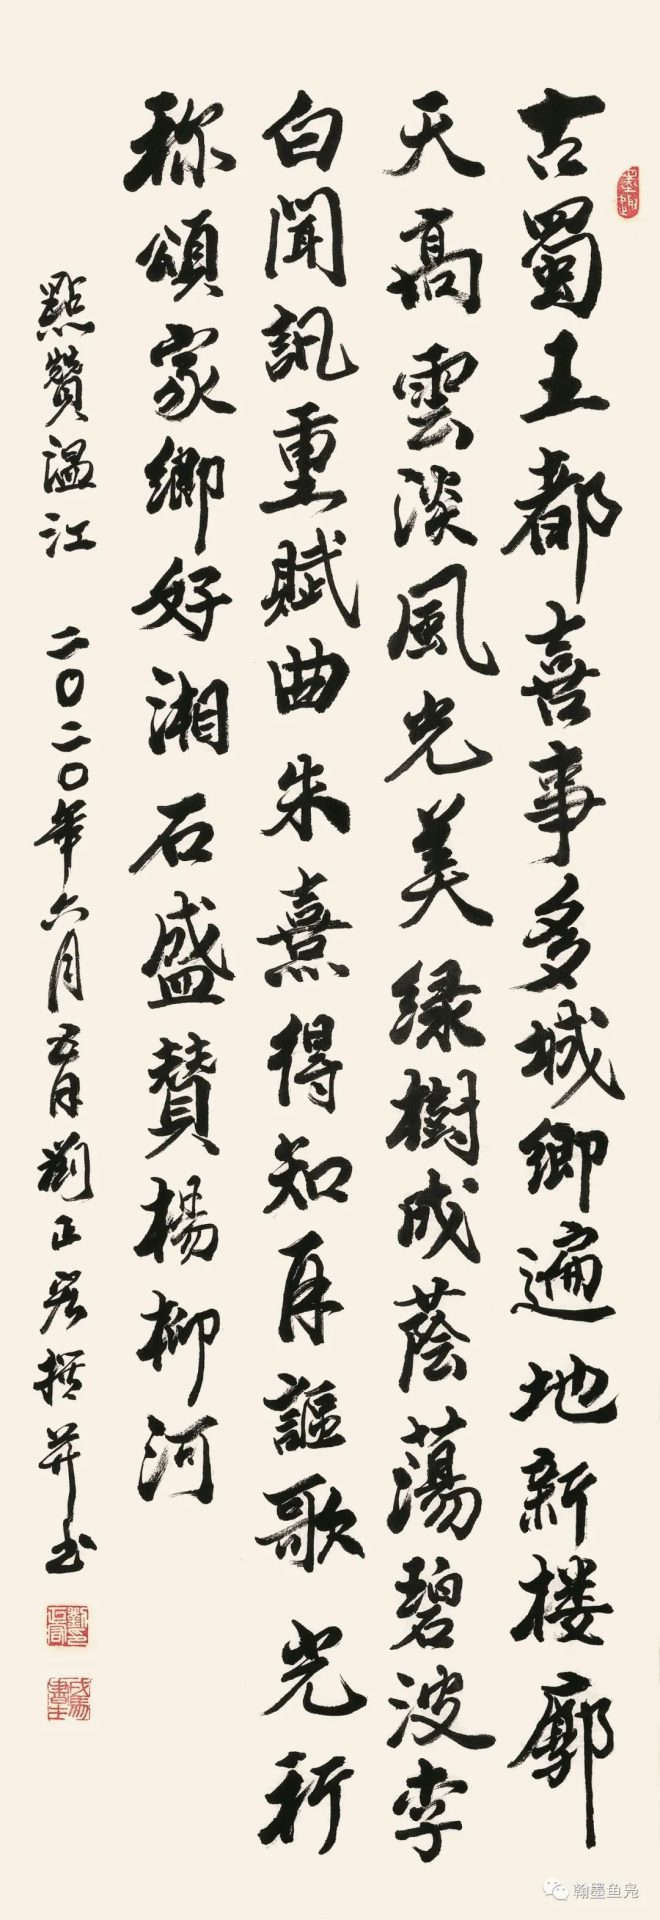 古蜀王都喜事多城鄉遍地新楼廓
天高雲淡風光美绿樹成蔭蕩碧波李
白聞訊重賦曲朱熹得知再謳歌光祈
称頌家鄉好湘石盛赞楊柳河
點贊溫江 二〇二〇年六月五日劉正宏撰并书
翰墨鱼凫